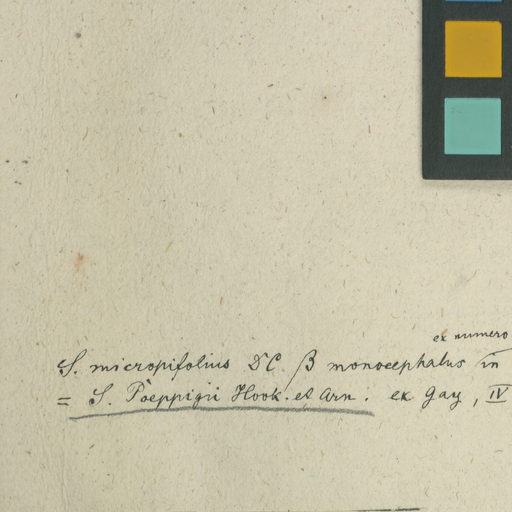 ex numero
S. micropifolius DC β monocephalus in
= S. Poeppigii Hook. et Arn. ex Gay, IV